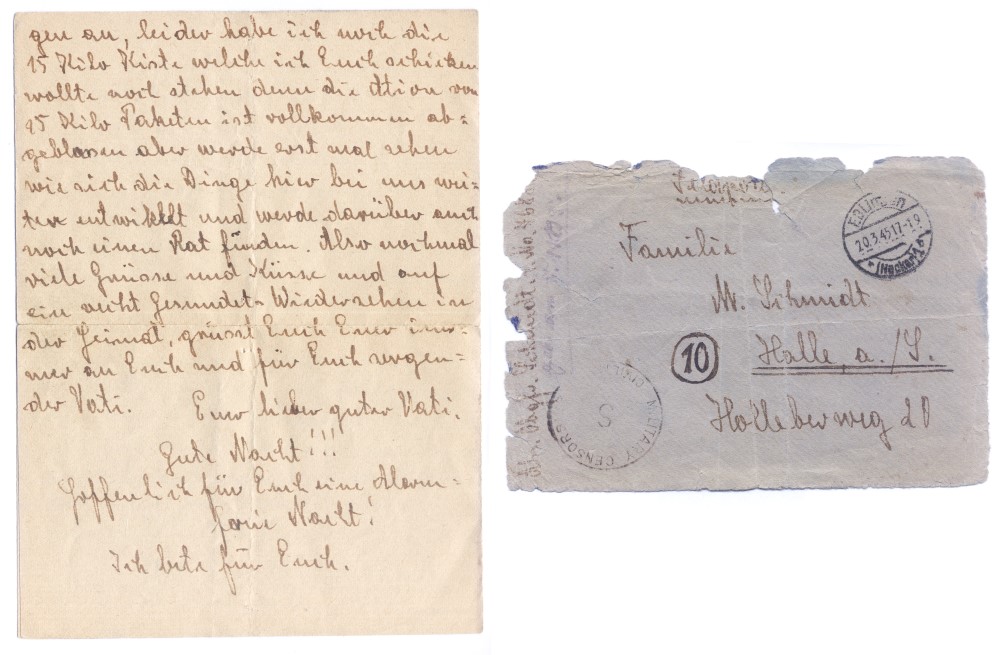 gen an, leider habe ich noch die
15 Kilo Kiste welche ich Euch schicken
wollte noch stehen denn die Aktion von
15 Kilo Paketen ist vollkommen ab=
geblasen aber werde erst mal sehen
wie sich die Dinge hier bei uns wei-
ter entwikkelt und werde darüber auch
noch einen Rat finden. Also nochmal
viele Grüsse und Küsse und auf
ein recht Gesundet-Wiedersehen in
der Heimat, grüsst Euch Euer im=
mer an Euch und für Euch sorgen=
der Vati.
Euer lieber guter Vati.
Gute Nacht!!!
Hoffentlich für Euch eine Alarm=
freie Nacht!
Ich bete für Euch.
Feldpost.
ESSLINGEN
20.3.45 17-19
(Neckar)
Familie
W. Schmidt
10
Halle a./S.
Holleberweg 20
MILITARY CENSORS
CIVIL MAILS
S